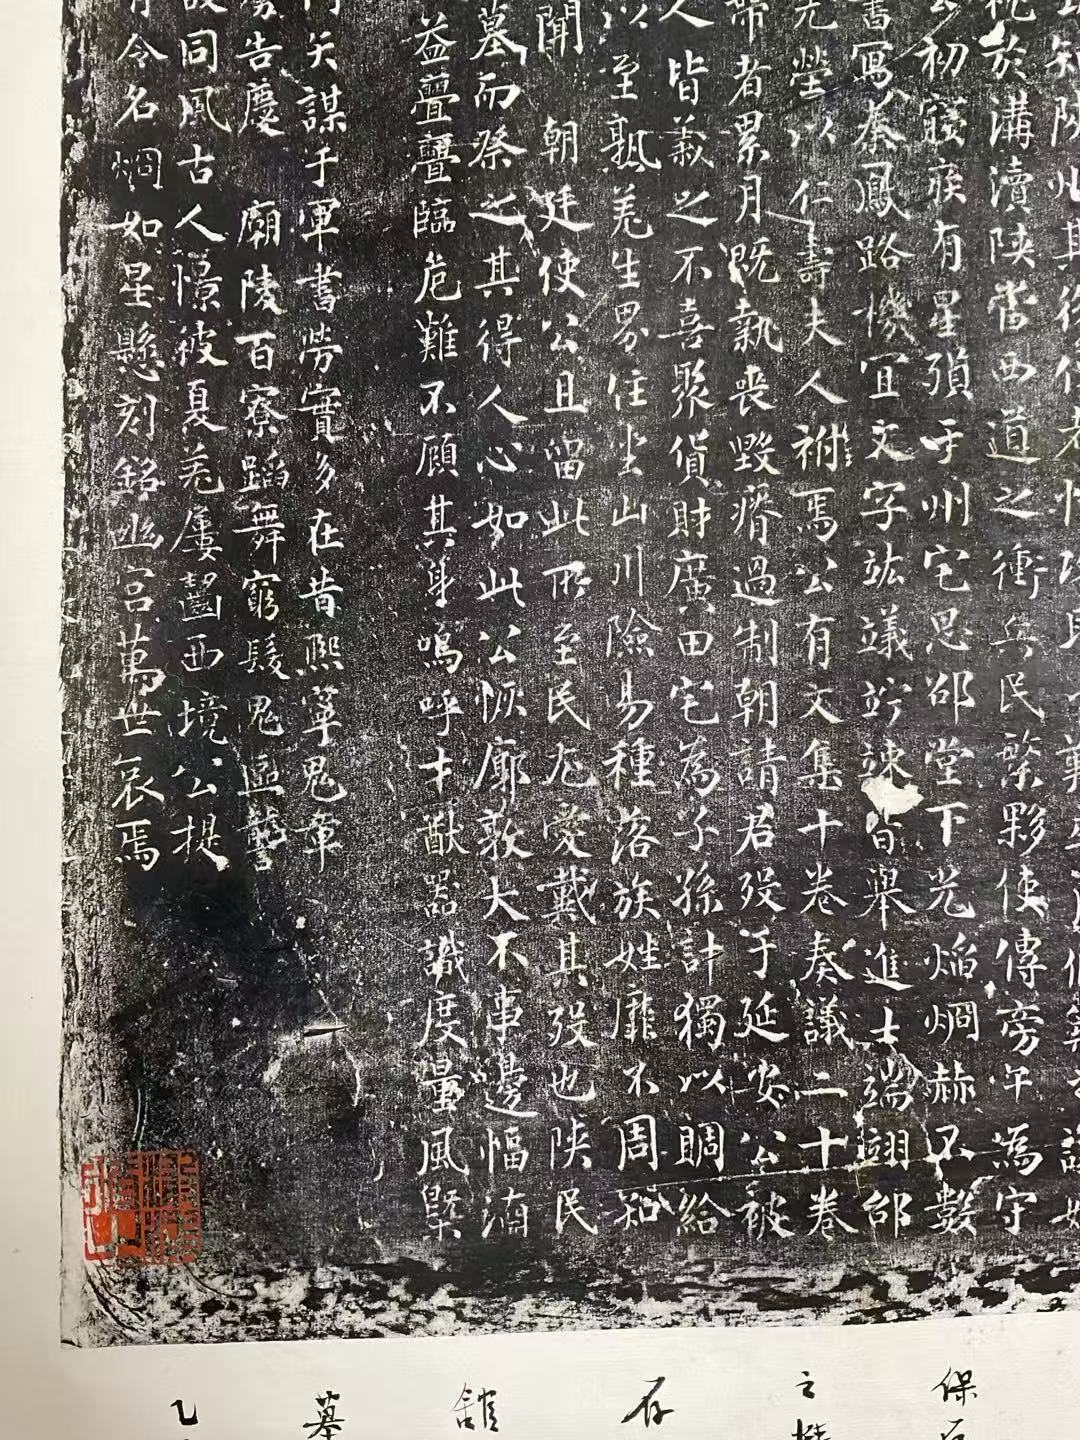 祝於溝瀆陝當西道之衝兵民繁夥使傳旁午為守
初寢疾有星殞于州宅思邵堂下光焰烱赫不數
書寫秦鳳路機宜文字竑議竚竦皆舉進士端翊邵
先塋以仁壽夫人祔焉公有文集十卷奏議二十卷
帶者累月既執喪毀瘠過制朝請君歿于延安公被
人皆義之不喜聚貨財廣田宅為子孫計獨以賙給
以至熟羌生界住坐山川險易種落族姓靡不周知
聞朝廷使公且留此所至民尤愛戴其歿也陝民
墓而祭之其得人心如此公恢廓敦大不事邊幅
益亹亹臨危難不顧其身嗚呼才猷器識度量風槩
矢謀于軍書勞實多在昔熙寧鬼章
告慶廟陵百寮蹈舞窮髮鬼區
同風古人憬彼夏羌屢齧西境公提
令名烱如星懸刻銘幽宮萬世哀焉
保
之
存
館
墓